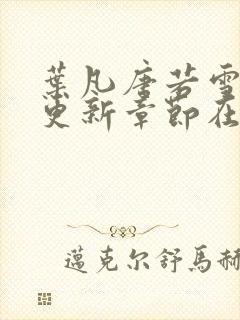 葉凡唐若雪
更新章節在
邁克尔舒馬赫